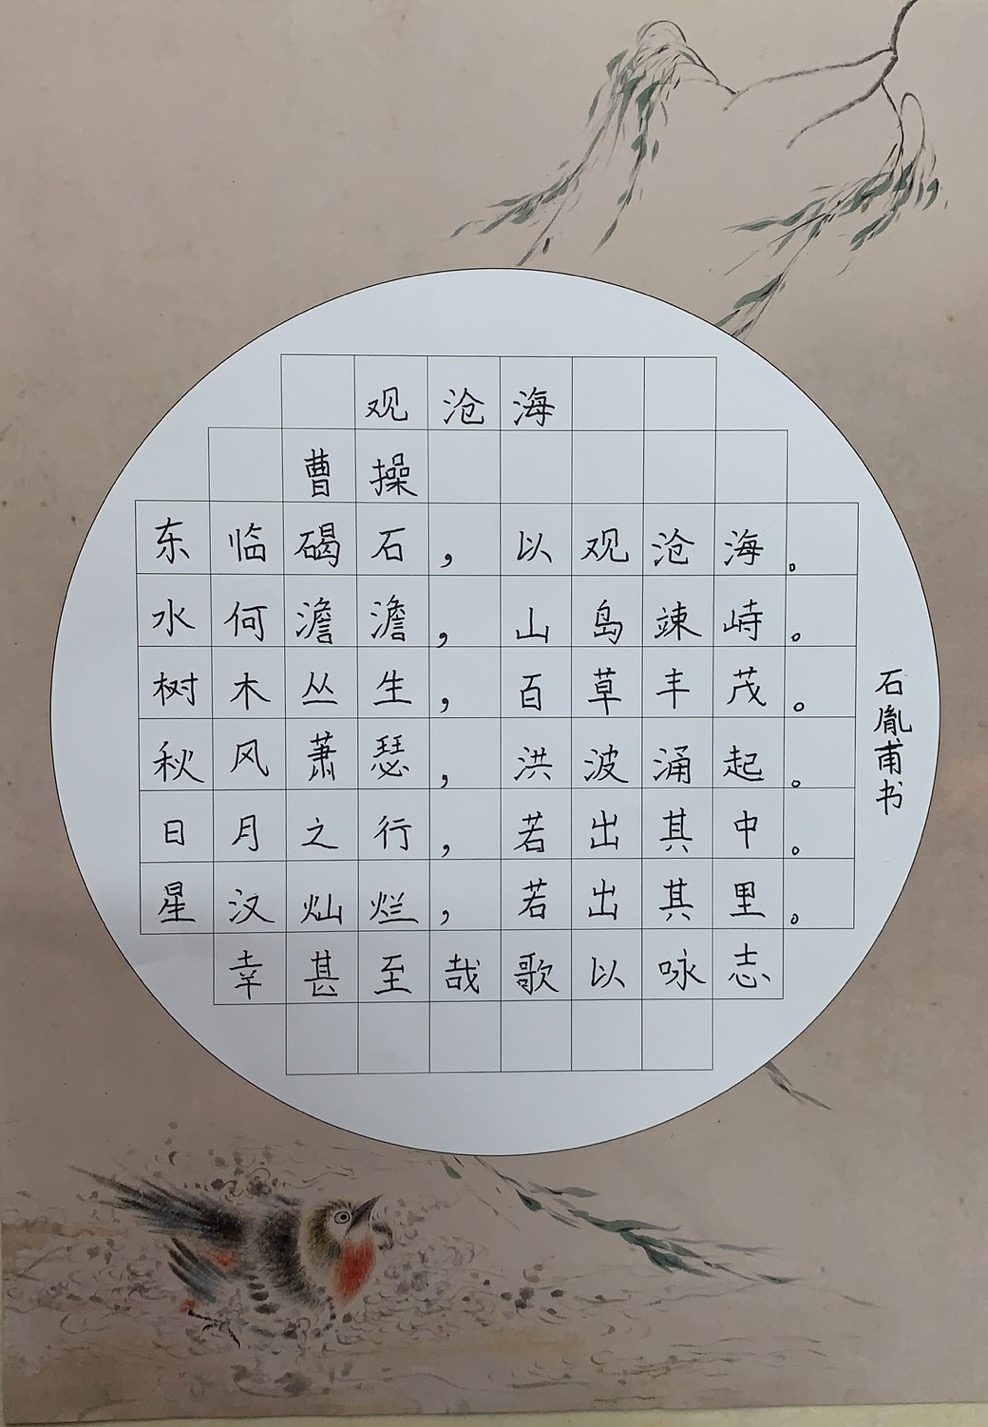 观沧海
曹操
东临碣石，以观沧海。
水何澹澹，山岛竦峙。
树木丛生，百草丰茂。
秋风萧瑟，洪波涌起。
日月之行，若出其中。
星汉灿烂，若出其里。
幸甚至哉歌以咏志
石胤甫书